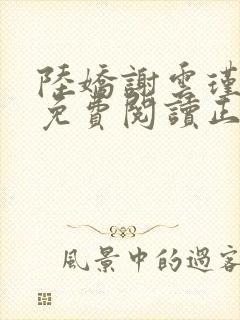 陸嬌謝雲瑾
免費閱讀正
風景中的過客